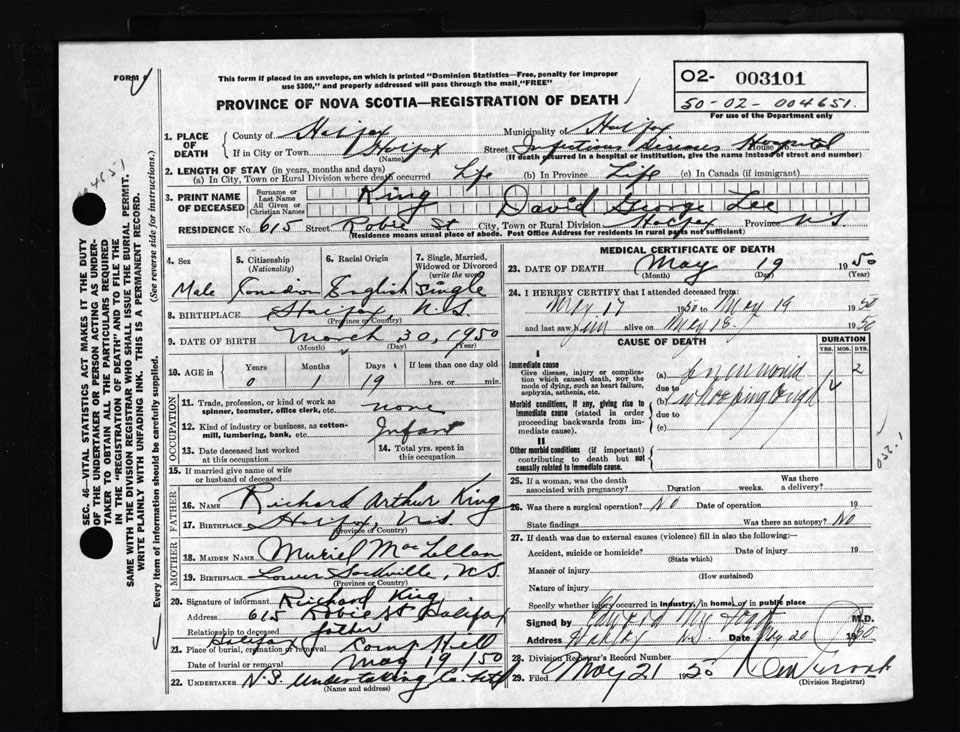 FORM
This form if placed in an envelope, on which is printed "Dominion Statistics—Free, penalty for improper
use $300," and properly addressed will pass through the mail, "FREE"
PROVINCE OF NOVA SCOTIA—REGISTRATION OF DEATH
02- 003101
50-02-004651.
For use of the Department only
1. PLACE OF DEATH
County of Halifax Municipality of Halifax
If in City or Town Halifax Street Infectious Diseases Hospital House No.
(Name) (If death occurred in a hospital or institution, give the name instead of street and number)
2. LENGTH OF STAY (in years, months and days)
(a) In City, Town or Rural Division where death occurred Life (b) In Province Life (c) In Canada (if immigrant)
3. PRINT NAME OF DECEASED
Surname or Last Name King
All Given or Christian Names David George Lee
RESIDENCE No. 615 Street Robie St City, Town or Rural Division Halifax Province N.S.
(Residence means usual place of abode. Post Office Address for residents in rural parts not sufficient)
4. Sex
Male
5. Citizenship
(Nationality)
Canadian
6. Racial Origin
English
7. Single, Married,
Widowed or Divorced
(write the word)
Single
8. BIRTHPLACE Halifax, N.S.
(Province or Country)
9. DATE OF BIRTH March 30, 1950
(Month) (Day) (Year)
10. AGE in Years Months Days If less than one day old
0 1 19 hrs. or min.
OCCUPATION
11. Trade, profession, or kind of work as
spinner, teamster, office clerk, etc. none
12. Kind of industry or business, as cotton-
mill, lumbering, bank, etc. Infant
13. Date deceased last worked
at this occupation
14. Total yrs. spent in
this occupation
15. If married give name of wife
or husband of deceased
FATHER
16. NAME Richard Arthur King
17. BIRTHPLACE Halifax, N.S.
(Province or Country)
MOTHER
18. MAIDEN NAME Muriel MacLellan
19. BIRTHPLACE Lower Sackville, N.S.
(Province or Country)
20. Signature of informant Richard King
Address 615 Robie St Halifax
Relationship to deceased father
Halifax
21. Place of burial, cremation or removal Camp Hill
Date of burial or removal May 19/50
22. UNDERTAKER N.S. Undertaking Co. Ltd
(Name and address)
MEDICAL CERTIFICATE OF DEATH
23. DATE OF DEATH May 19 1950
(Month) (Day) (Year)
24. I HEREBY CERTIFY that I attended deceased from:
May 17 1950 to May 19 1950
and last saw him alive on May 18 1950
CAUSE OF DEATH
DURATION
YRS. MOS. DYS.
I
Immediate cause
Give disease, injury or complica-
tion which caused death, not the
mode of dying, such as heart failure,
asphyxia, asthenia, etc.
(a) pneumonia 2
due to
(b) whooping cough
due to
(c)
Morbid conditions, if any, giving rise to
immediate cause (stated in order
proceeding backwards from im-
mediate cause).
II
Other morbid conditions (if important)
contributing to death but not
causally related to immediate cause.
25. If a woman, was the death
associated with pregnancy? Duration weeks. Was there
a delivery?
26. Was there a surgical operation? No Date of operation 19
State findings Was there an autopsy? No
27. If death was due to external causes (violence) fill in also the following:—
Accident, suicide or homicide? Date of injury 19
(State which)
Manner of injury
(How sustained)
Nature of injury
Specify whether injury occurred in industry, in home, or in public place
Signed by M.D.
Address Halifax N.S. Date May 20 1950
28. Division Registrar's Record Number
29. Filed May 21 1950
(Division Registrar)
SEC. 46—VITAL STATISTICS ACT MAKES IT THE DUTY
OF THE UNDERTAKER OR PERSON ACTING AS UNDER-
TAKER TO OBTAIN ALL THE PARTICULARS REQUIRED
IN THE "REGISTRATION OF DEATH" AND TO FILE THE
SAME WITH THE DIVISION REGISTRAR WHO SHALL ISSUE THE BURIAL PERMIT.
WRITE PLAINLY WITH UNFADING INK. THIS IS A PERMANENT RECORD.
Every item of information should be carefully supplied. (See reverse side for instructions.)